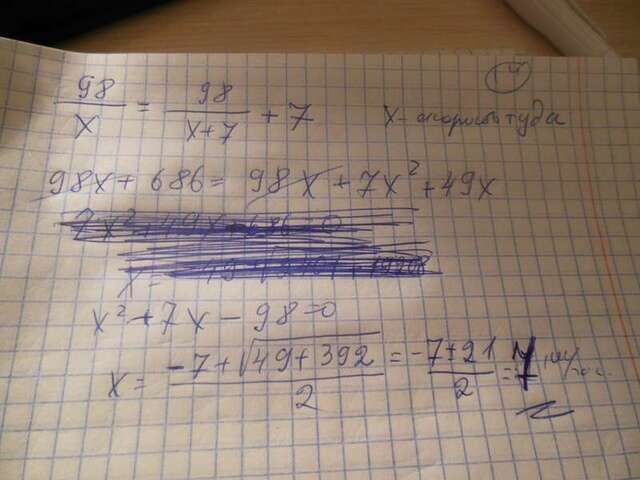 14
98/x = 98/(x+7) + 7 x - скорость туда
98x + 686 = 98x + 7x² + 49x
x² + 7x - 98 = 0
x = (-7 + √(49 + 392))/2 = (-7 ± 21)/2 = 7 км/час.